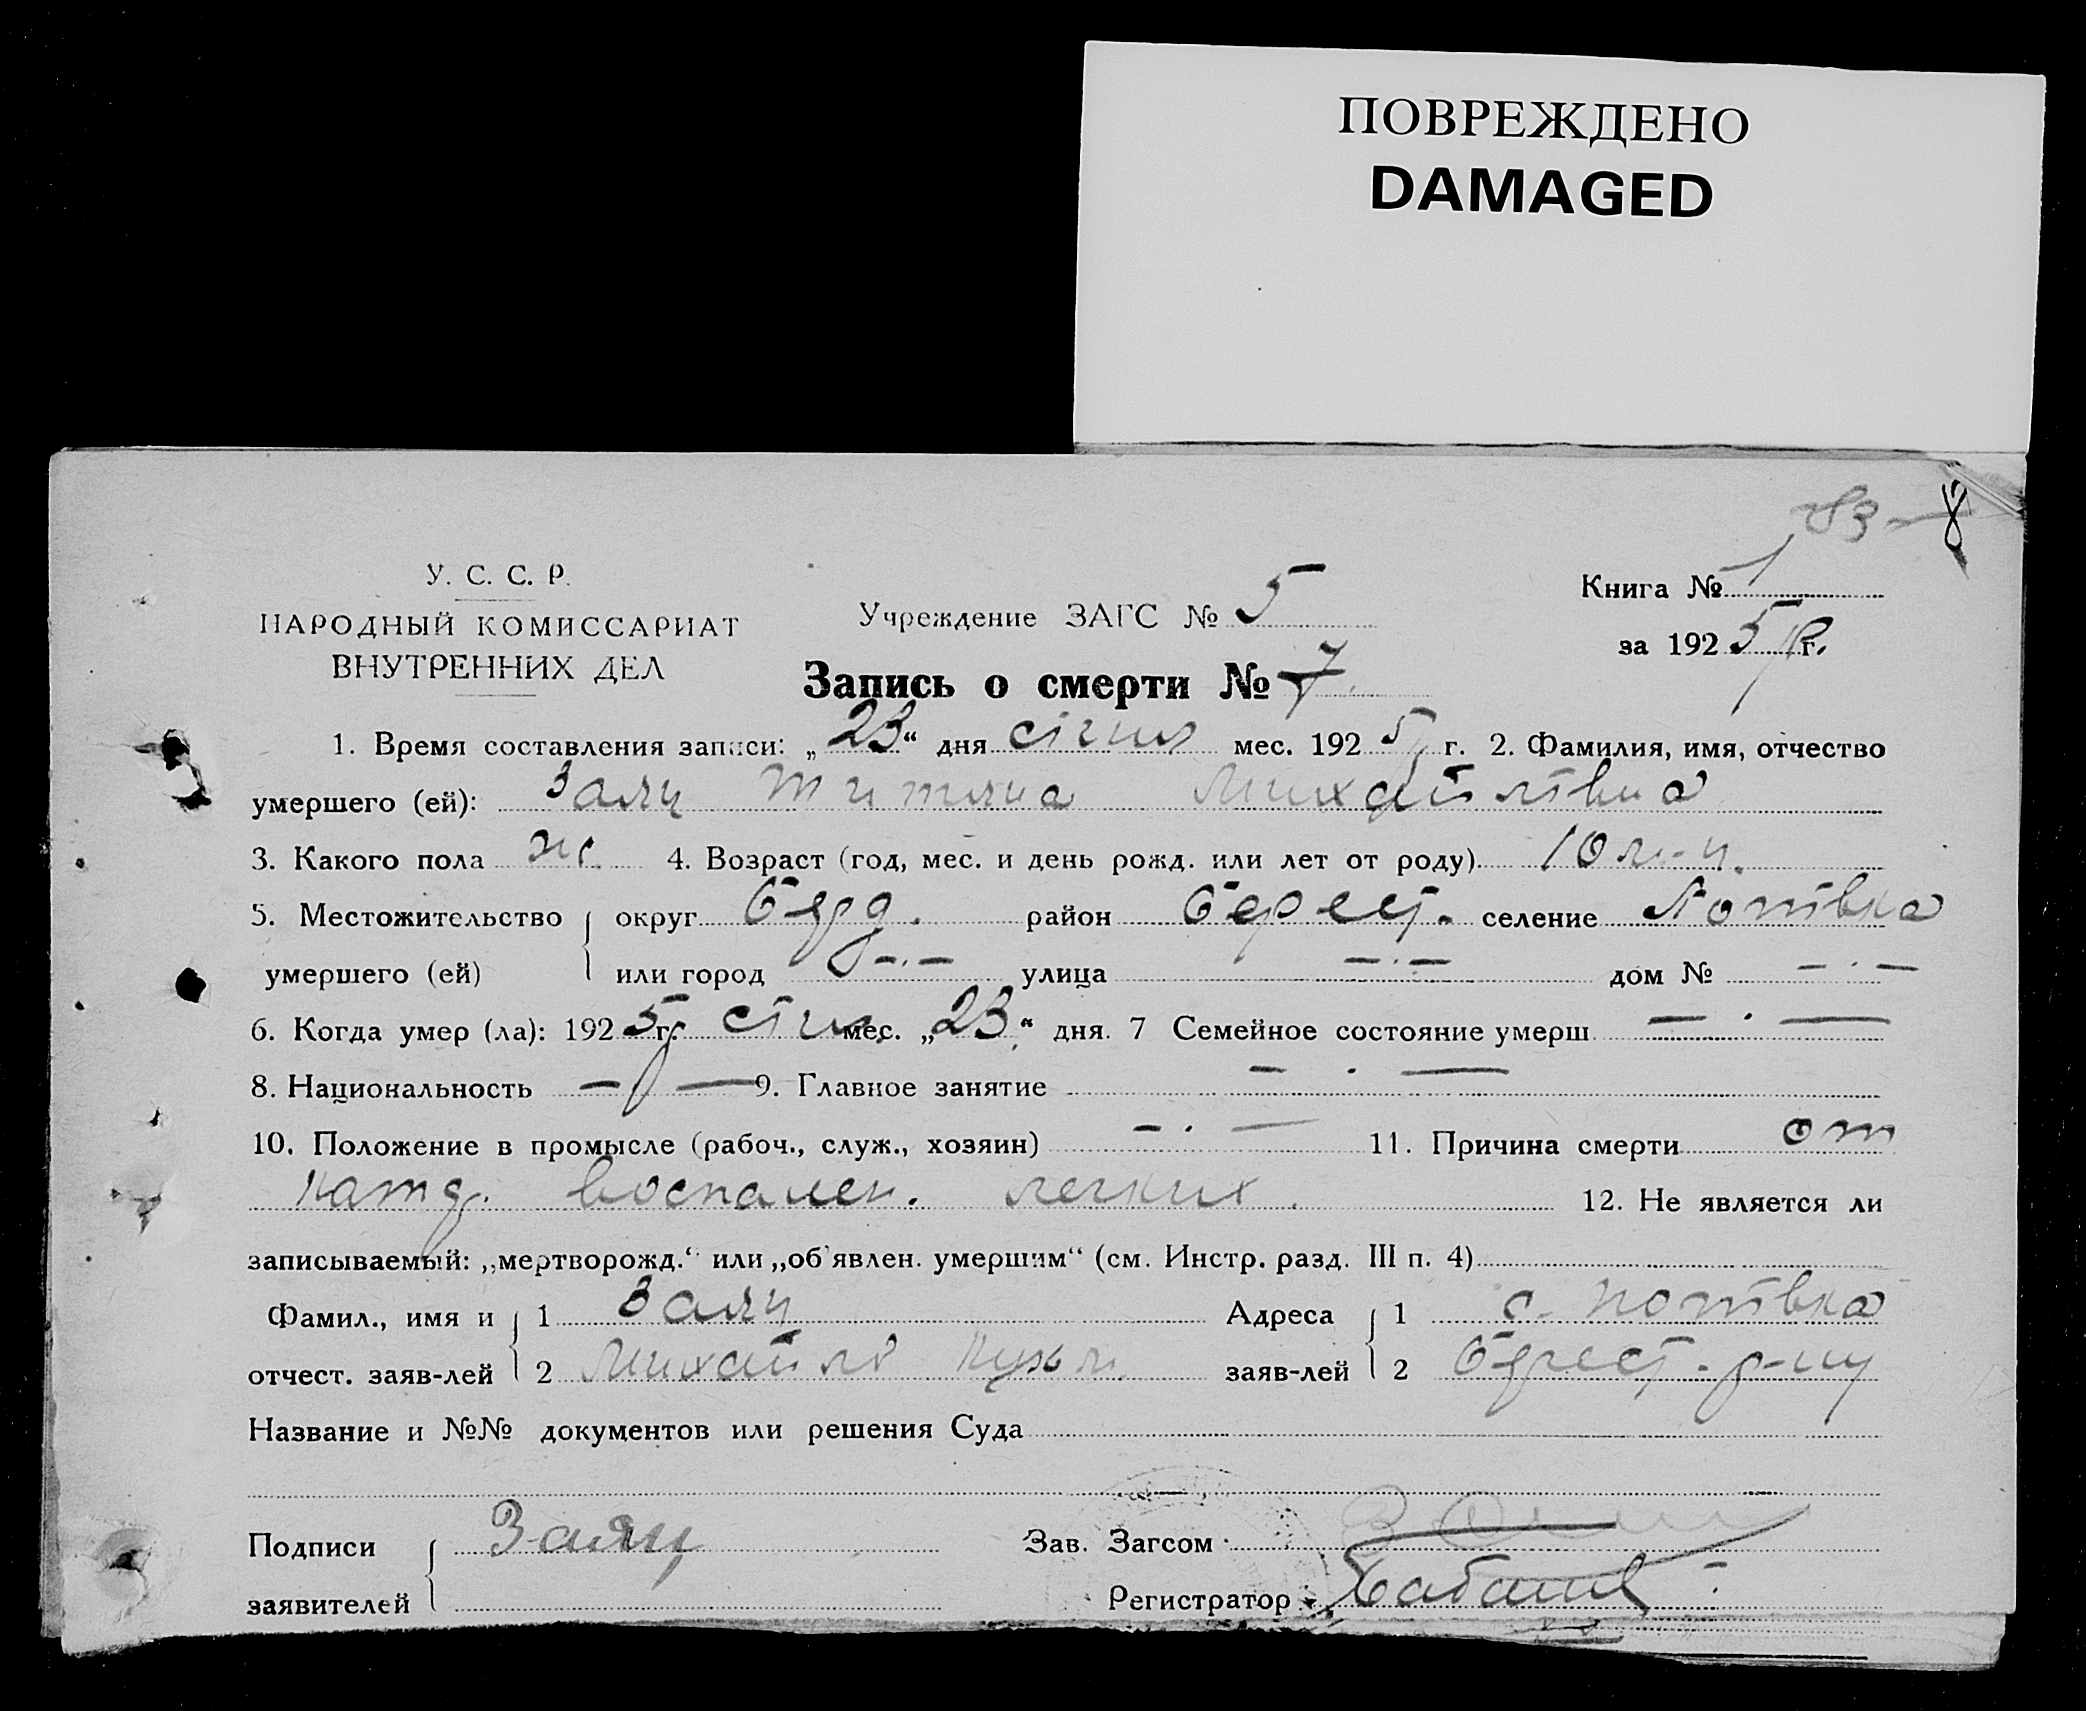 ПОВРЕЖДЕНО
DAMAGED
83
8
У. С. С. Р.
НАРОДНЫЙ КОМИССАРИАТ
ВНУТРЕННИХ ДЕЛ
Учреждение ЗАГС № 5
Книга № 1
за 1925 г.
Запись о смерти № 7
1. Время составления записи: „23“ дня січня мес. 1925 г. 2. Фамилия, имя, отчество
умершего (ей): Заяц Михайлівна
3. Какого пола ж. 4. Возраст (год, мес. и день рожд. или лет от роду) 10
5. Местожительство округ Берд. район Берест. селение Потівка
умершего (ей) или город — . — улица — . — дом № — . —
6. Когда умер (ла): 1925 г. січн. мес. „23“ дня. 7 Семейное состояние умерш. — . —
8. Национальность — — 9. Главное занятие — . —
10. Положение в промысле (рабоч., служ., хозяин) — . — 11. Причина смерти от
воспален. легких. 12. Не является ли
записываемый: „мертворожд.“ или „об'явлен. умершим“ (см. Инстр. разд. III п. 4)
Фамил., имя и 1 Заяц Адреса 1 с. Потівка
отчест. заяв-лей 2 Михайло заяв-лей 2 Берест. р-ну
Название и №№ документов или решения Суда
Подписи Заяц Зав. Загсом
заявителей Регистратор: